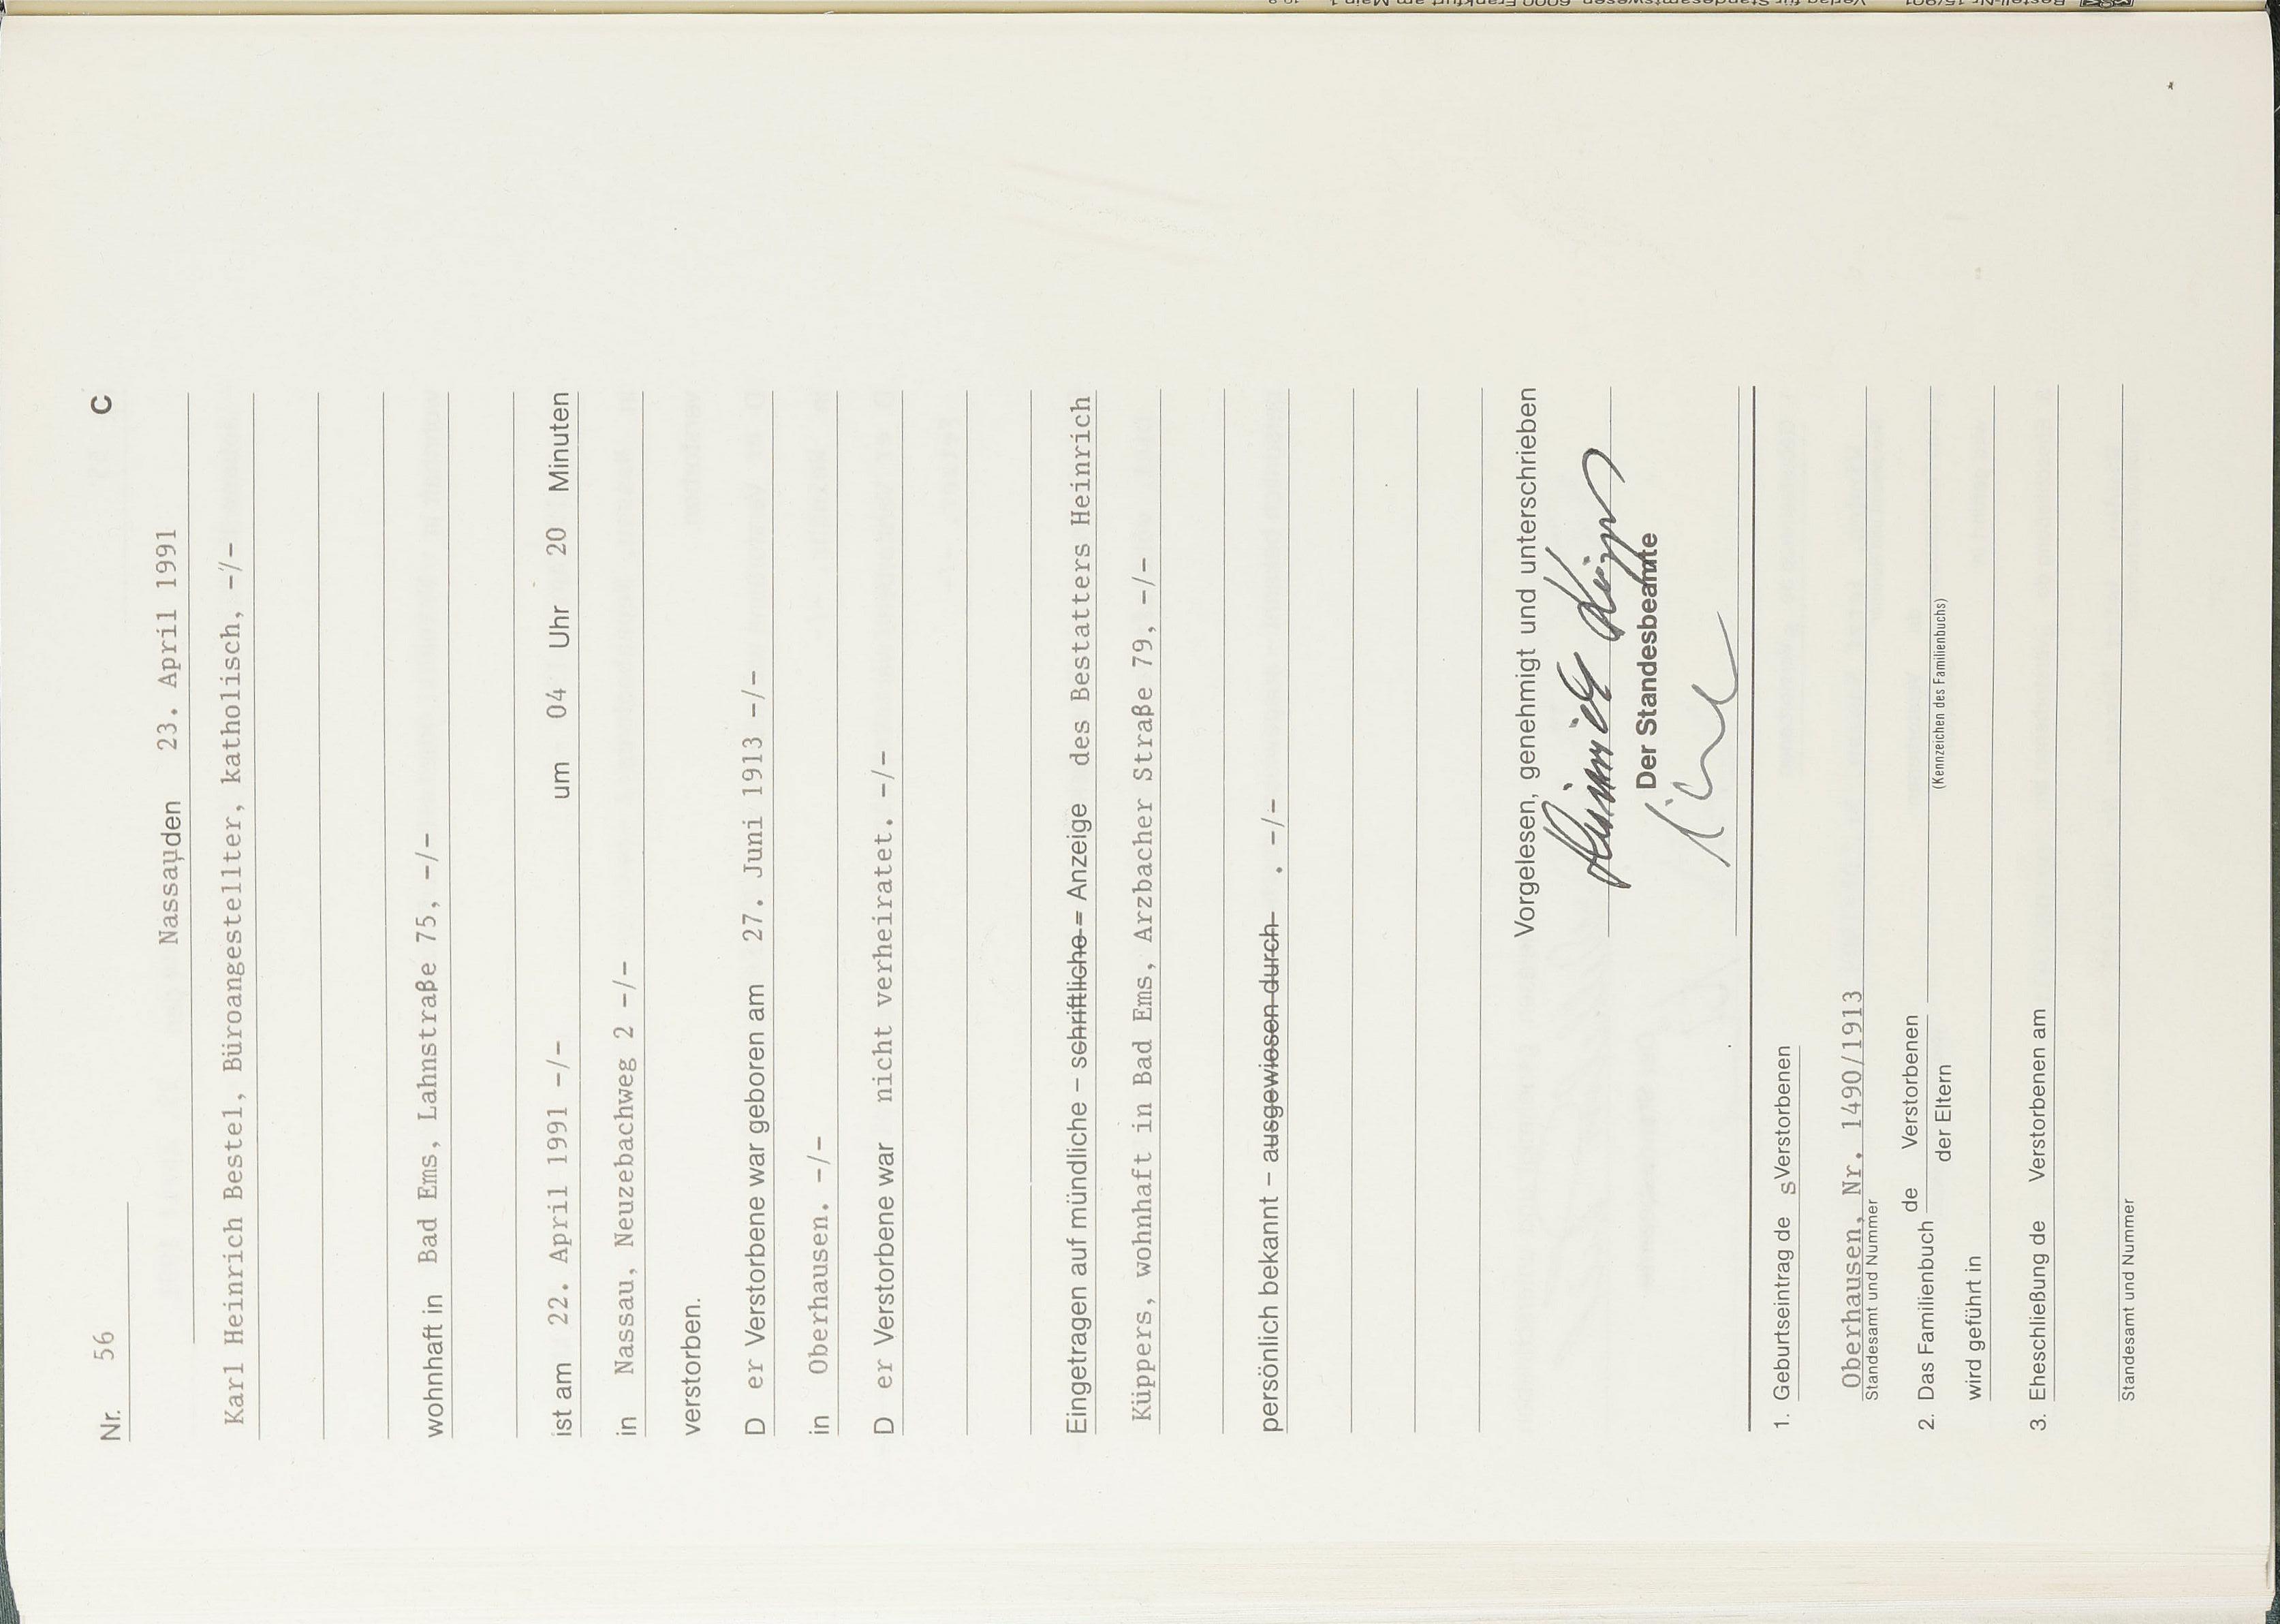 Nr. 56 C
Nassau, den 23. April 1991
Karl Heinrich Bestel, Büroangestellter, katholisch, -/-
wohnhaft in Bad Ems, Lahnstraße 75, -/-
ist am 22. April 1991 -/- um 04 Uhr 20 Minuten
in Nassau, Neuzebachweg 2 -/-
verstorben.
D er Verstorbene war geboren am 27. Juni 1913 -/-
in Oberhausen. -/-
D er Verstorbene war nicht verheiratet. -/-
Eingetragen auf mündliche – schriftliche = Anzeige des Bestatters Heinrich
Küppers, wohnhaft in Bad Ems, Arzbacher Straße 79, -/-
persönlich bekannt – ausgewiesen durch . -/-
Vorgelesen, genehmigt und unterschrieben
Heinrich Küppers
Der Standesbeamte
1. Geburtseintrag de s Verstorbenen
Oberhausen, Nr. 1490/1913
Standesamt und Nummer
2. Das Familienbuch de Verstorbenen
der Eltern
(Kennzeichen des Familienbuchs)
wird geführt in
3. Eheschließung de Verstorbenen am
Standesamt und Nummer